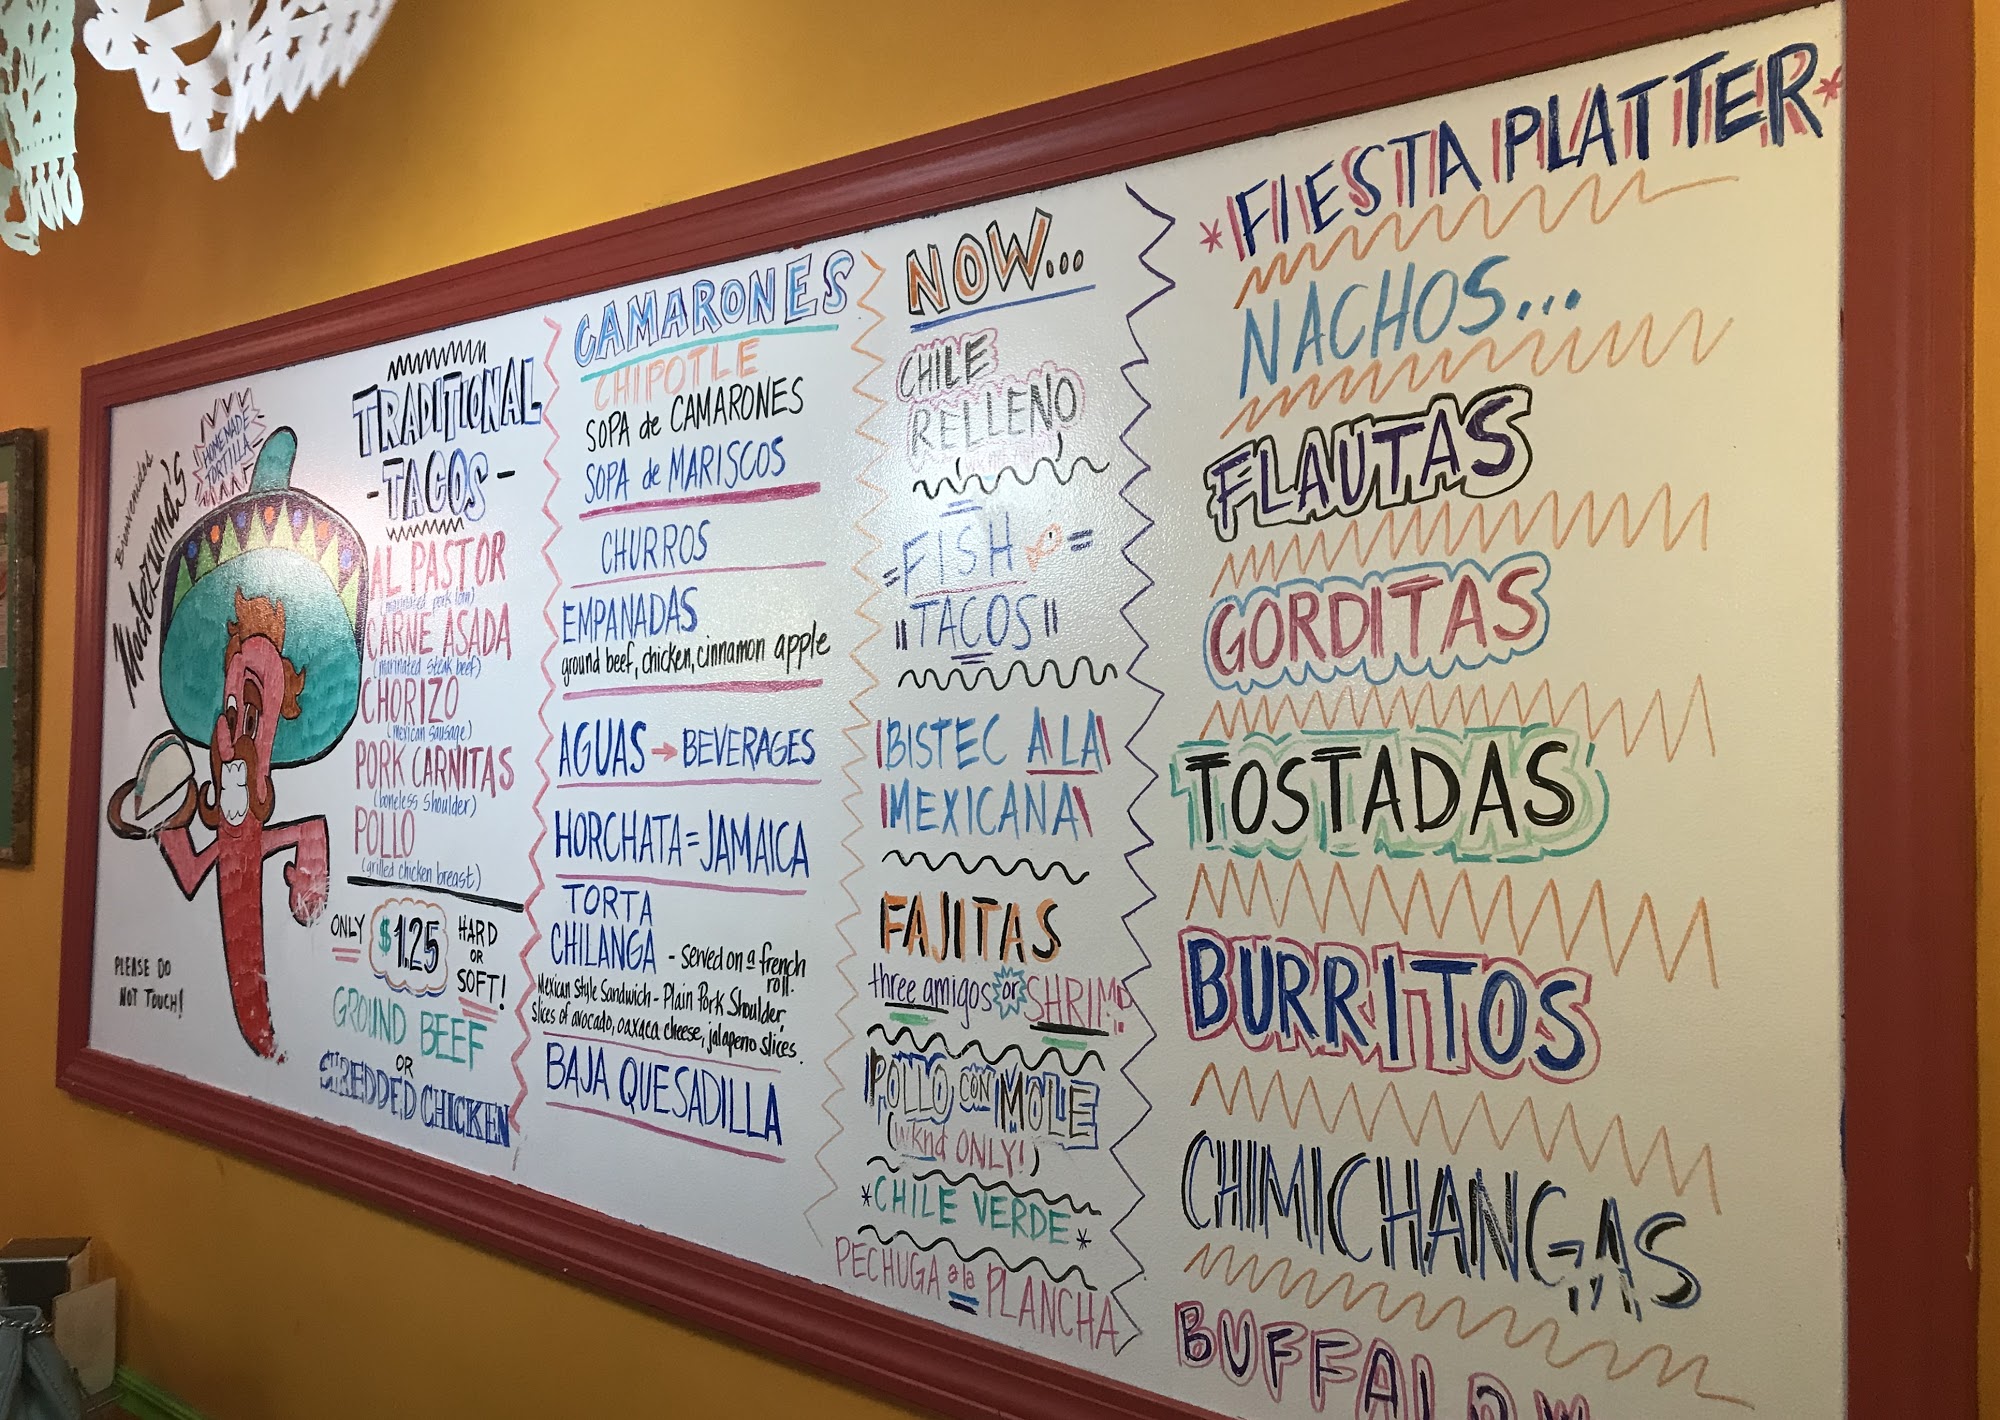 Bienvenidos
Moctezuma's
HOMEMADE
TORTILLA
PLEASE DO
NOT TOUCH!
TRADITIONAL
- TACOS -
AL PASTOR
(marinated pork loin)
CARNE ASADA
(marinated steak beef)
CHORIZO
(mexican sausage)
PORK CARNITAS
(boneless shoulder)
POLLO
(grilled chicken breast)
ONLY $1.25 HARD
OR
SOFT!
GROUND BEEF
OR
SHREDDED CHICKEN
CAMARONES
CHIPOTLE
SOPA de CAMARONES
SOPA de MARISCOS
CHURROS
EMPANADAS
ground beef, chicken, cinnamon apple
AGUAS → BEVERAGES
HORCHATA = JAMAICA
TORTA
CHILANGA - served on a french
roll.
Mexican Style Sandwich - Plain Pork Shoulder,
slices of avocado, oaxaca cheese, jalapeno slices.
BAJA QUESADILLA
NOW...
CHILE
RELLENO
FISH
"TACOS"
BISTEC A LA
MEXICANA
FAJITAS
three amigos or SHRIMP
POLLO CON MOLE
(wknd ONLY!)
*CHILE VERDE*
PECHUGA a la PLANCHA
*FIESTA PLATTER*
NACHOS...
FLAUTAS
GORDITAS
TOSTADAS
BURRITOS
CHIMICHANGAS
BUFFALOW